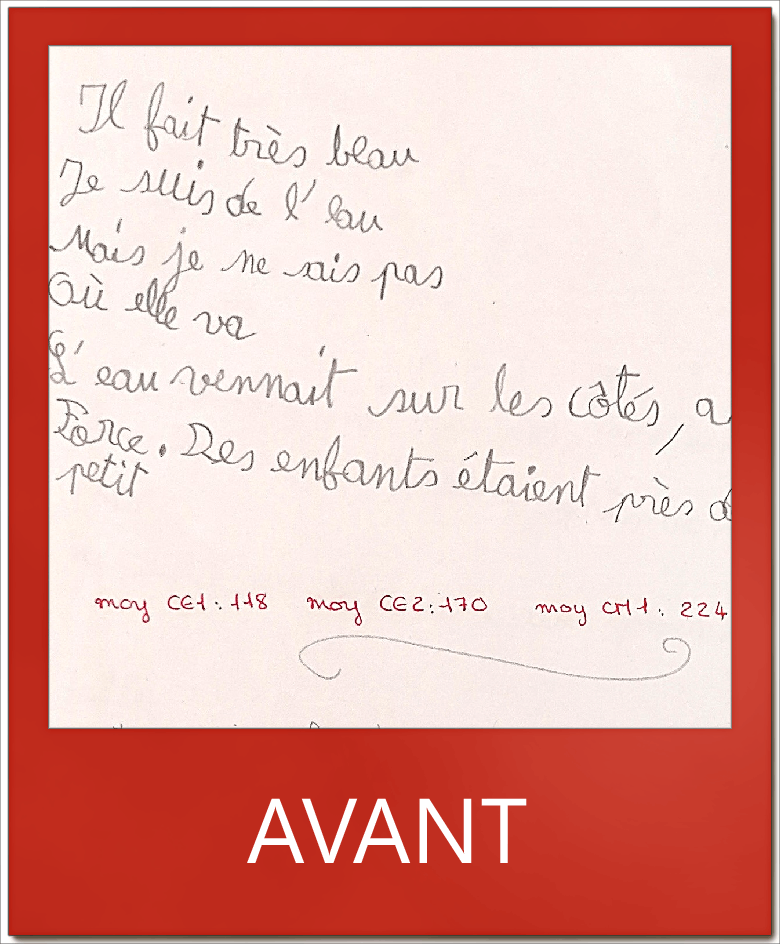 Il fait très beau
Je suis de l'eau
Mais je ne sais pas
Où elle va
L'eau vennait sur les côtés, a
Force. Des enfants étaient près d
petit
moy CE1: 118 moy CE2: 170 moy CM1: 224
AVANT